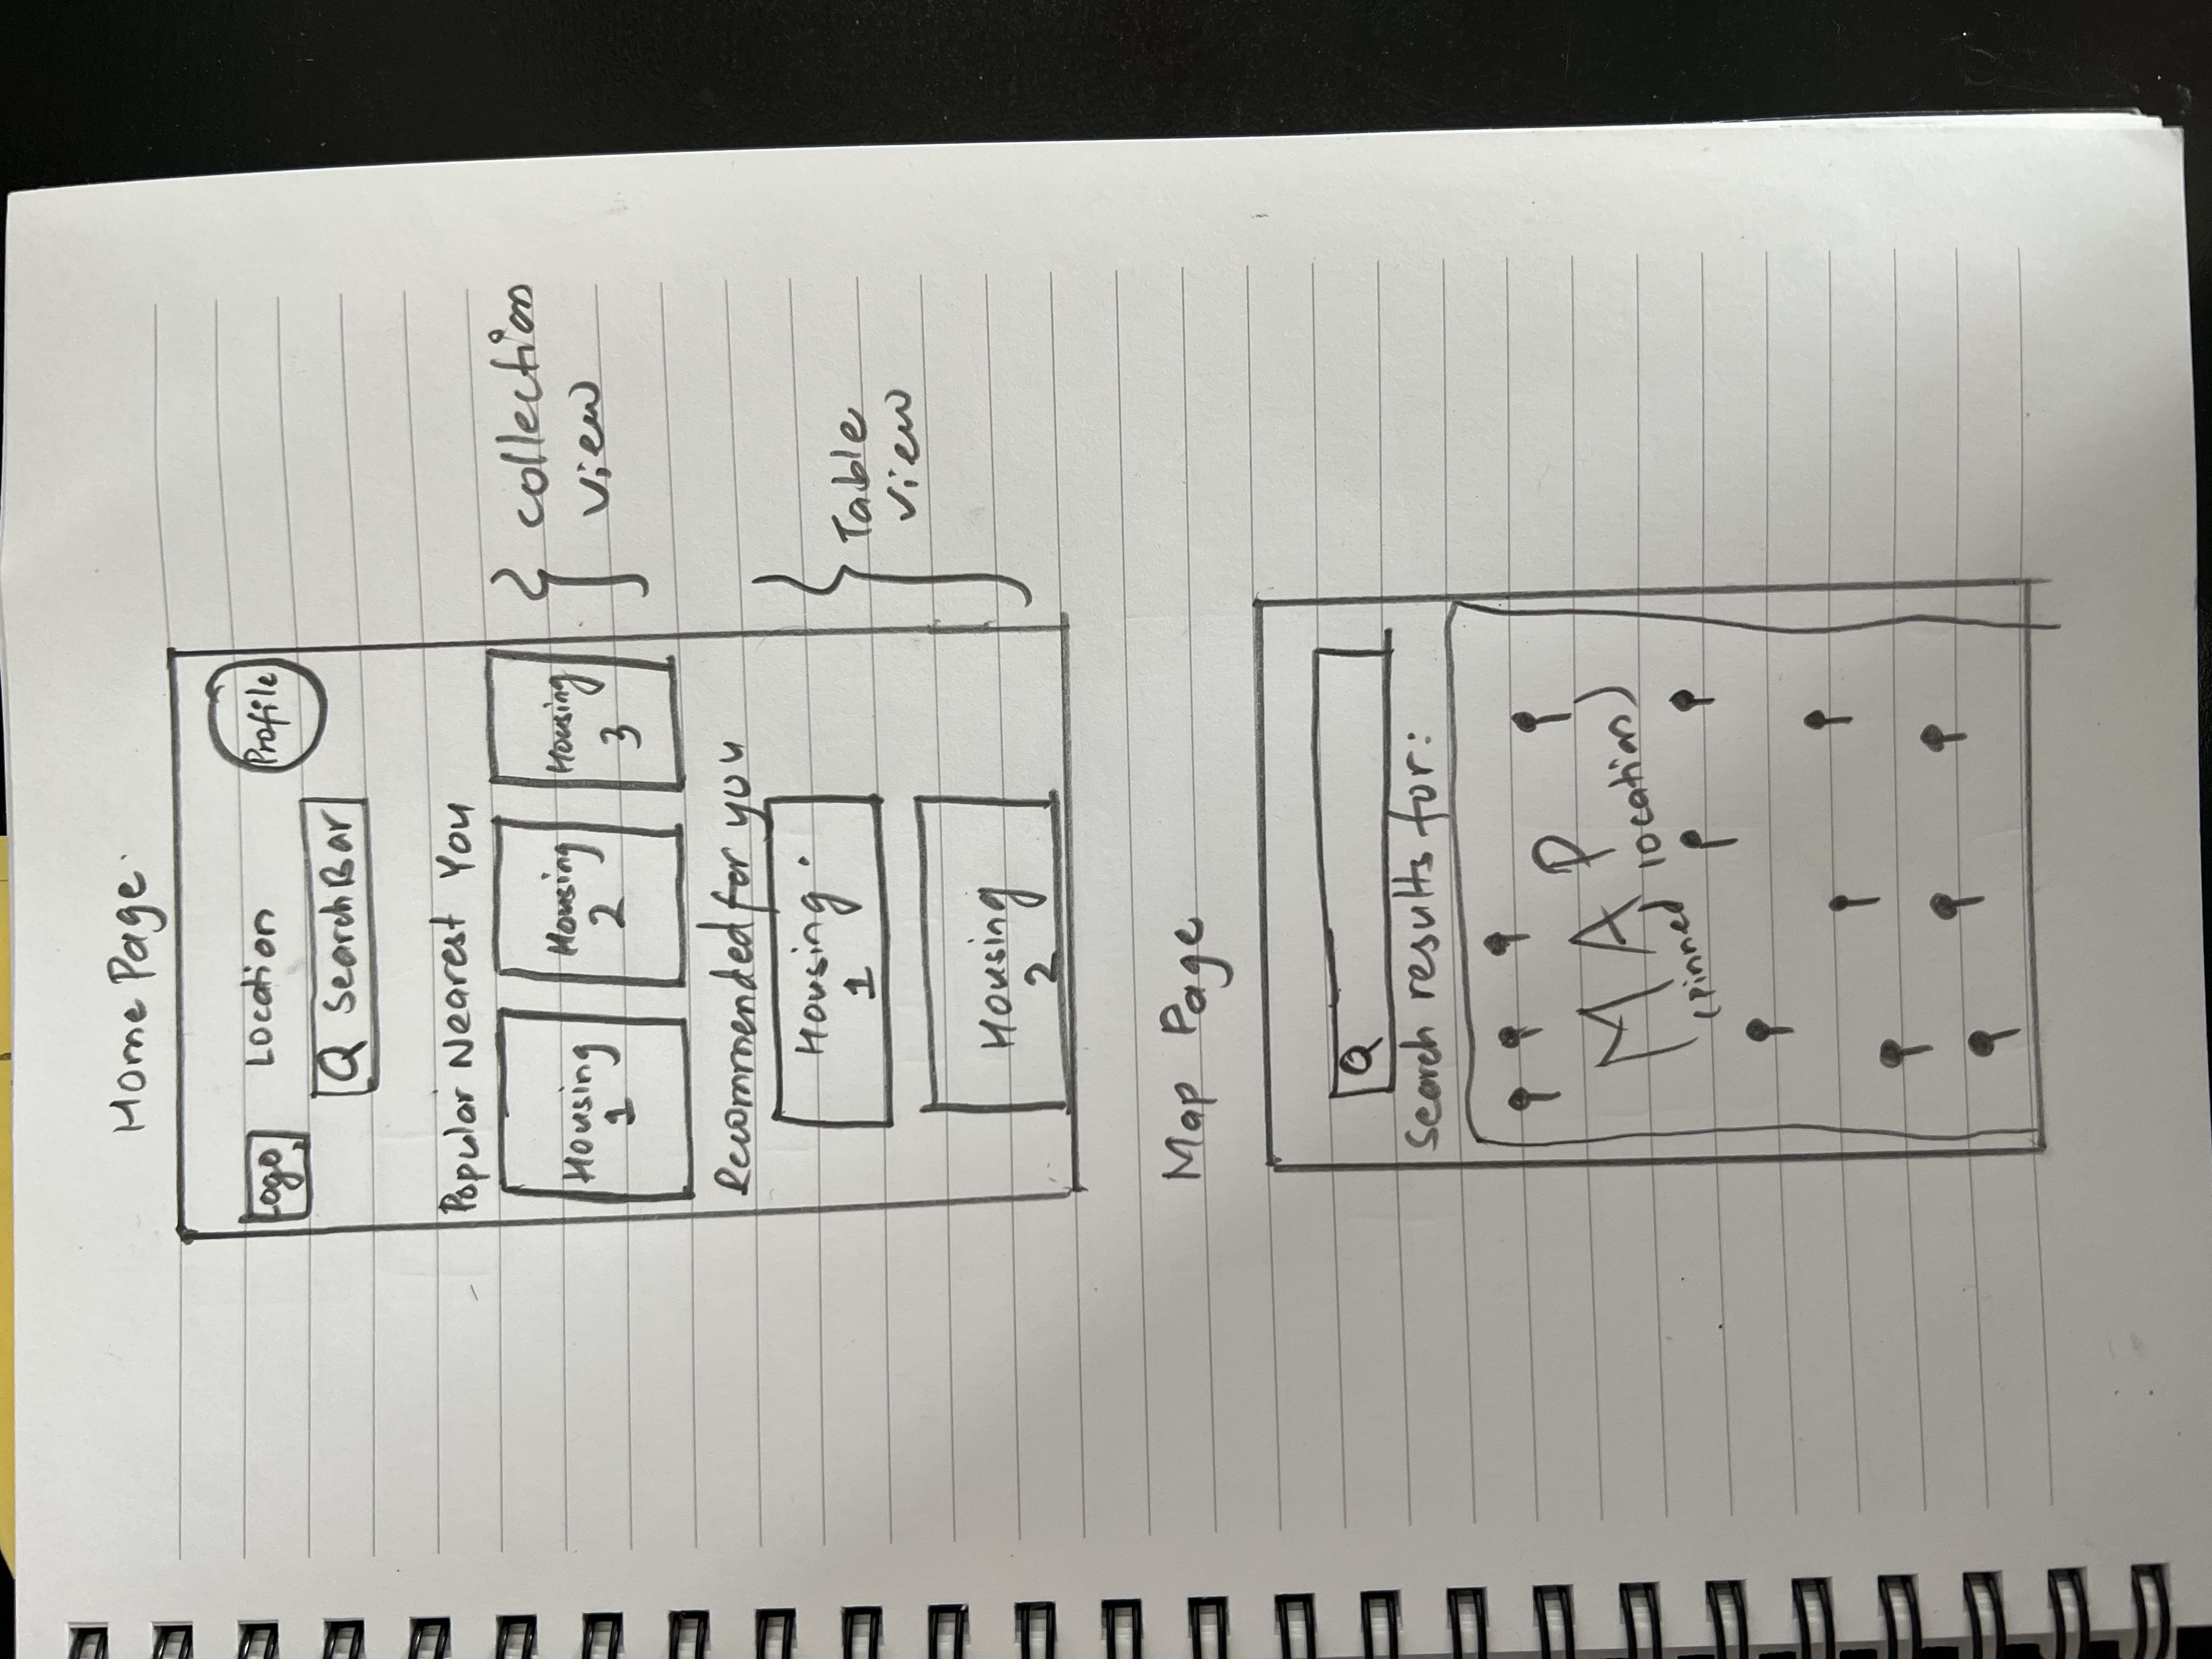 Home Page
Logo
Location
Profile
Search Bar
Popular Nearest You
Housing
1
Housing
2
Housing
3
Collection
View
Recommended for you
Housing
1
Housing
2
Table
View
Map Page
Search results for:
MAP
(pinned location)